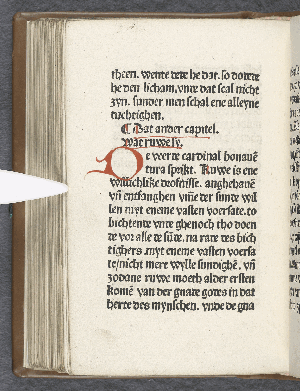 theen. wente dede he dat. so dodde
he den licham, vnde dat scal nicht
zyn. sunder men schal ene alleyne
tuchtighen.
¶ Dat ander capitel.
Wat ruwe sy.
De veerde cardinal bonauē
tura sprikt. Ruwe is ene
willichlike droffnisse. anghehauē
vñ entfanghen vmme der sunde wil
len myt eneme vasten vorsate. to
bichtende vnde ghenoch tho doen
de vor alle de sūde. na rade des bich
tighers. myt eneme vasten vorsa
te/nicht mere wylle sundighē. vñ
sodane ruwe moeth alder ersten
komē van der gnade godes in dat
herte des mynschen. vnde de gna